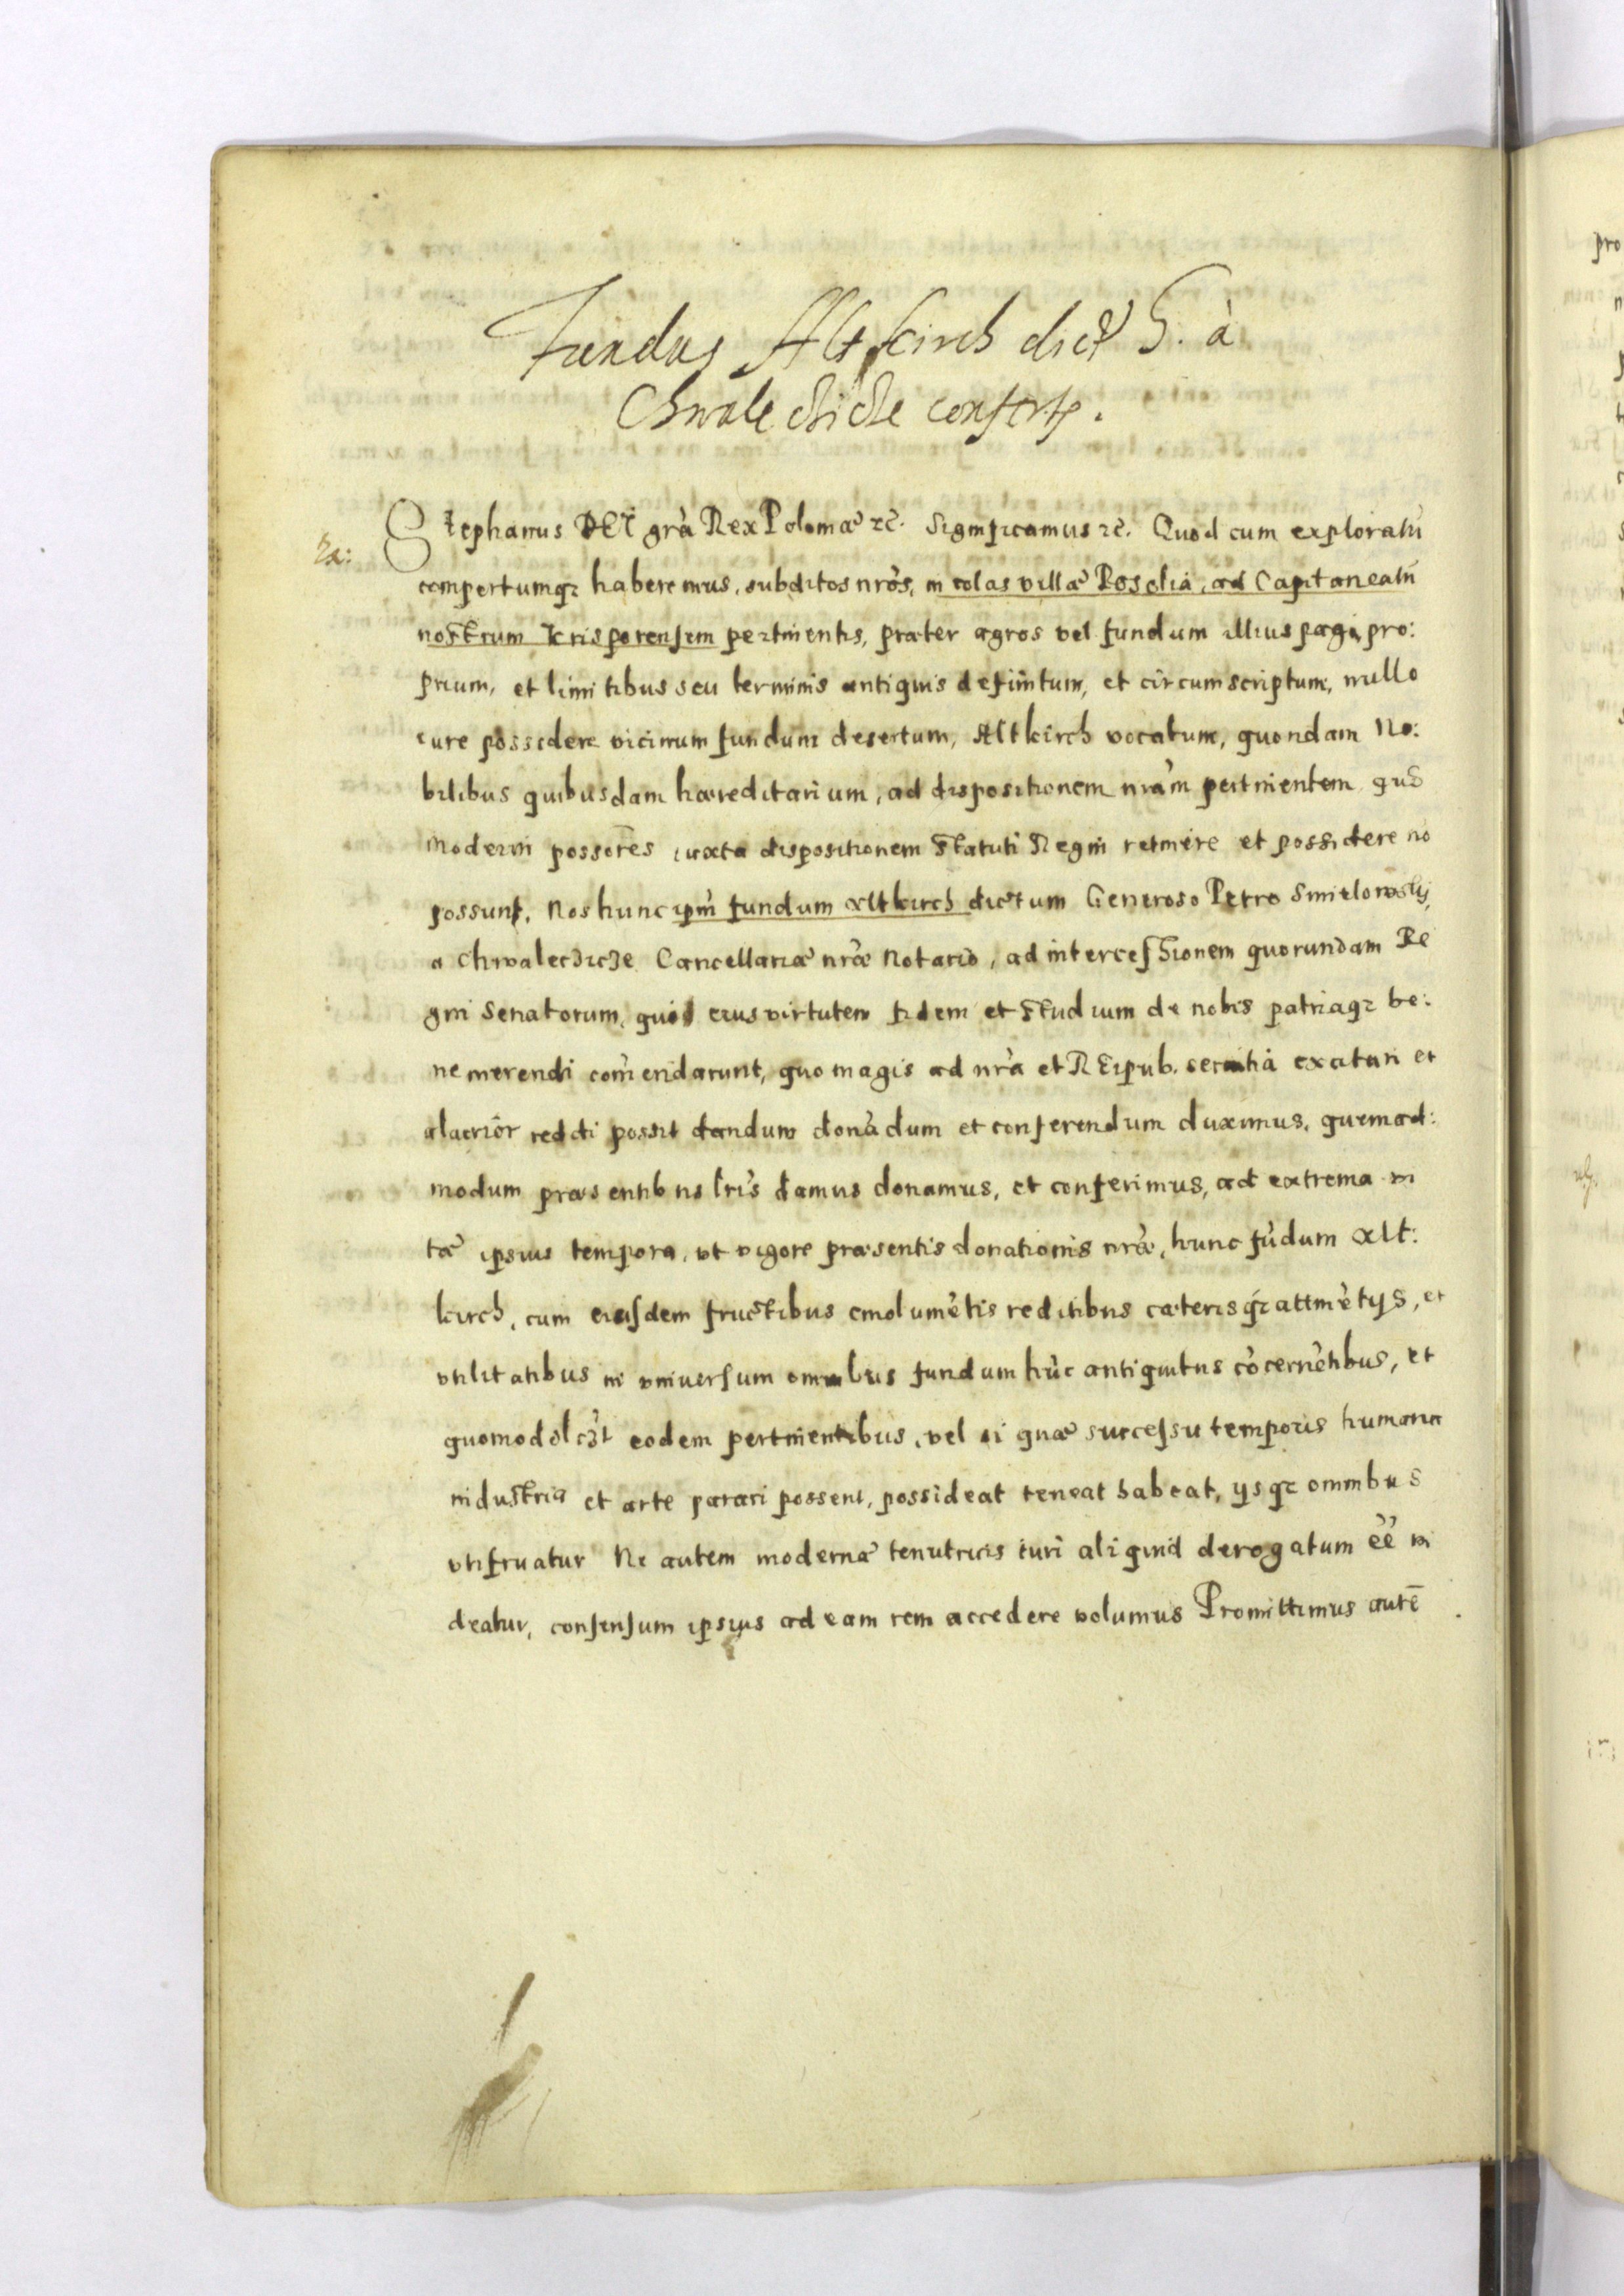 Fundus Altkirch dict9 G. à
Chwaleczicze confertr.
Ra:
Stephanus DEI grà Rex Poloniæ rc̃. Significamus rc̃. Quod cum exploratũ
compertumq3 haberemus, subditos nròs, incolas villæ Poselià, ad Capitaneatũ
nostrum Krisporensem pertinentis, præter agros vel fundum illius pagi, pro:
prium, et limitibus seu terminis antiquis definitum, et circumscriptum, nullo
iure possidere vicinum fundum desertum, Altkirch vocatum, quondam No:
bilibus quibusdam hæreditarium, ad dispositionem nràm pertinentem quẽ
moderni possores iuxta dispositionem Statuti Regni retinere et possidere nõ
possunt, Nos hunc ipm̃ fundum Altkirch dictum Generoso Petro Smielowskij,
a Chwaleczicze Cancellariæ nræ̀ Notario, ad intercessionem quorundam Re
gni Senatorum, quod eius virtutem fidem et studium de nobis patriaq3 be:
ne merendi com̀endarunt, quo magis ad nrà et REipub. seruitià excitari et
alacrior reddi possit dandum donàdum et conferendum duximus, quemad:
modum præsentibus lrìs damus donamus, et conferimus, ad extrema vi
tæ ipsius tempora, vt vigore præsentis donationis nræ̀, hunc fùdum Alt:
kirch, cum eiusdem fructibus emolumètis reditibus cæterisq3 attinètijs, et
vtilitatibus in vniuersum omnibus fundum hùc antiquitus còcernètibus, et
quomodolczt eodem pertinentibus, vel si quæ successu temporis humana
industria et arte parari possent, possideat teneat habeat, ijsq3 omnibus
vtifruatur Ne autem modernæ tenutricis iuri aliquid derogatum èè vi
deatur, consensum ipsius ad eam rem accedere volumus Promittimus autẽ